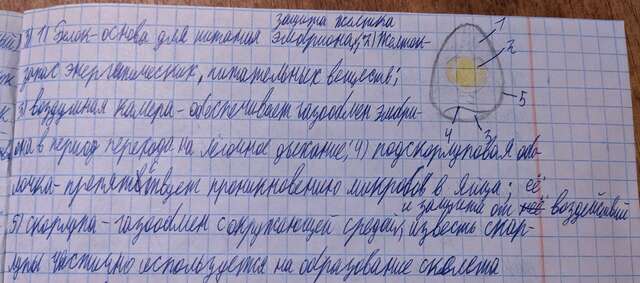 защита желтка
3) 1) Белок- основа для питания эмбриона; 2) Желток-
запас энергетических, питательных веществ;
3) воздушная камера- обеспечивает газообмен эмбри-
она в период перехода на легочное дыхание; 4) подскорлуповая обо-
лочка- препятствует проникновению микробов в яйцо; её
и защиты от воздействий
5) скорлупа- газообмен с окружающей средой, известь скор-
лупы частично используется на образование скелета
1
2
5
4
3